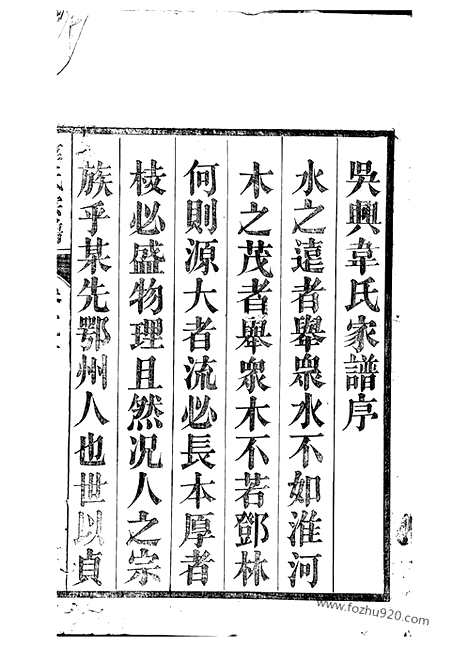 吳興韋氏家譜序
水之遠者舉衆水不如淮河
木之茂者舉衆木不若鄧林
何則源大者流必長本厚者
枝必盛物理且然况人之宗
族乎某先鄂州人也世以貞
www.fozhu920.com